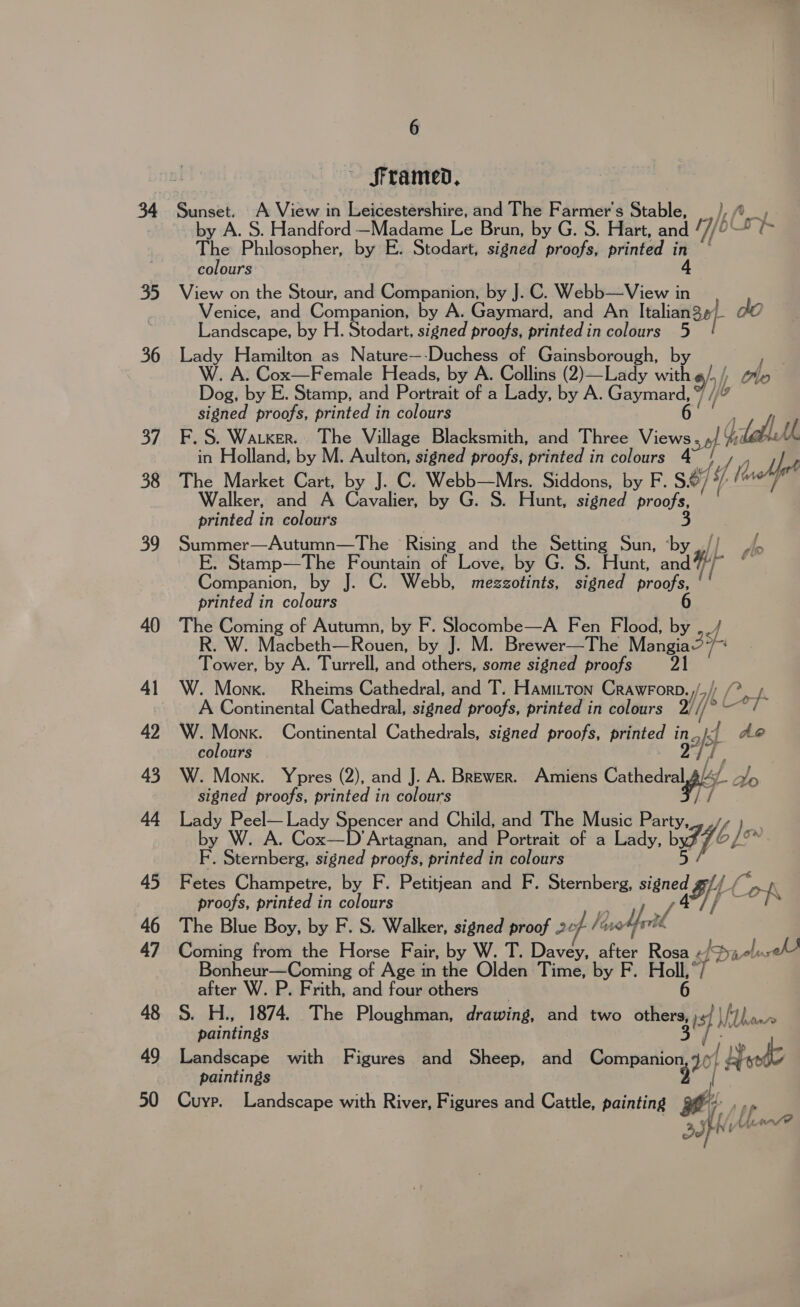 6
Framed.
34 Sunset. A View in Leicestershire, and The Farmer's Stable,
by A. S. Handford—Madame Le Brun, by G. S. Hart, and
The Philosopher, by E. Stodart, signed proofs, printed in
colours 4
35 View on the Stour, and Companion, by J. C. Webb—View in
Venice, and Companion, by A. Gaymard, and An Italian
Landscape, by H. Stodart, signed proofs, printed in colours 5
36 Lady Hamilton as Nature—Duchess of Gainsborough, by
W. A. Cox—Female Heads, by A. Collins (2)—Lady with a
Dog, by E. Stamp, and Portrait of a Lady, by A. Gaymard,
signed proofs, printed in colours 6
37 F. S. WALKER. The Village Blacksmith, and Three Views
in Holland, by M. Aulton, signed proofs, printed in colours 4
38 The Market Cart, by J. C. Webb—Mrs. Siddons, by F. S.
Walker, and A Cavalier, by G. S. Hunt, signed proofs,
printed in colours 3
39 Summer—Autumn—The Rising and the Setting Sun, by
E. Stamp—The Fountain of Love, by G. S. Hunt, and
Companion, by J. C. Webb, mezzotints, signed proofs,
printed in colours 6
40 The Coming of Autumn, by F. Slocombe—A Fen Flood, by
R. W. Macbeth—Rouen, by J. M. Brewer—The Mangia
Tower, by A. Turrell, and others, some signed proofs 21
41 W. MONK. Rheims Cathedral, and T. HAMILTON CRAWFORD.
A Continental Cathedral, signed proofs, printed in colours 2
42 W. MONK. Continental Cathedrals, signed proofs, printed in
colours 2
43 W. MONK. Ypres (2), and J. A. BREWER. Amiens Cathedral,
signed proofs, printed in colours 3
44 Lady Peel—Lady Spencer and Child, and The Music Party,
by W. A. Cox—D'Artagnan, and Portrait of a Lady, by
F. Sternberg, signed proofs, printed in colours 5
45 Fetes Champetre, by F. Petitjean and F. Sternberg, signed
proofs, printed in colours 4
46 The Blue Boy, by F. S. Walker, signed proof
47 Coming from the Horse Fair, by W. T. Davey, after Rosa
Bonheur—Coming of Age in the Olden Time, by F. Holl,
after W. P. Frith, and four others 6
48 S. H., 1874. The Ploughman, drawing, and two others,
paintings 3
49 Landscape with Figures and Sheep, and Companion,
paintings 2
50 CUYP. Landscape with River, Figures and Cattle, painting